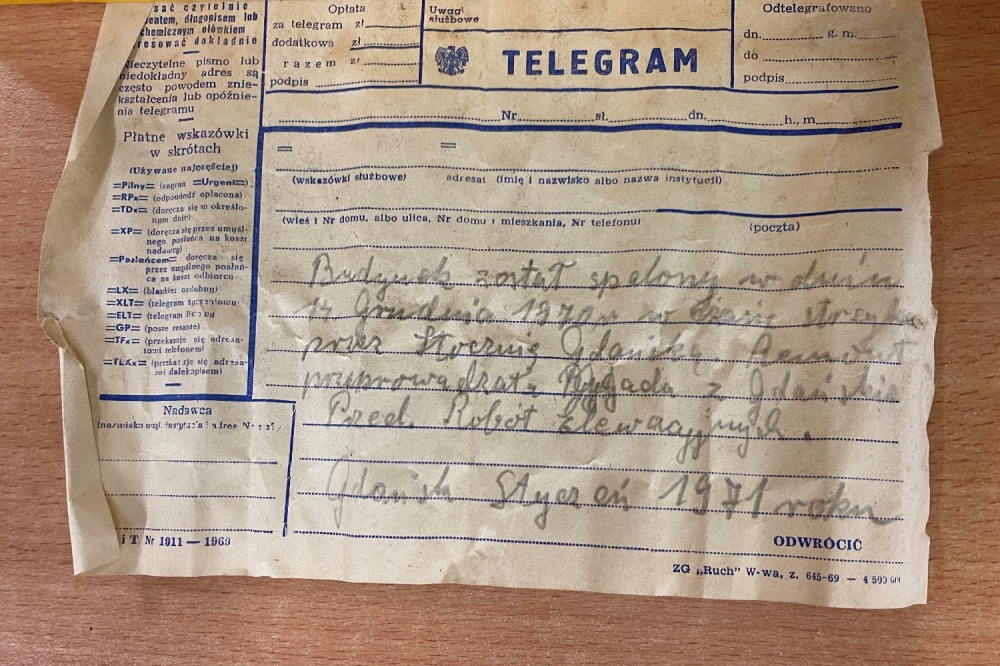 sać czytelnie
entem, długopisem lub
chemicznym ołówkiem
resować dokładnie
Nieczytelne pismo lub
niedokładny adres są
często powodem znie-
kształcenia lub opóźnie-
nia telegramu
Płatne wskazówki
w skrótach
(Używane najczęściej)
=Pilny= (zagran =Urgent=)
=RPx= (odpowiedź opłacona)
=TDx= (doręcza się w określo-
nym dniu)
=XP= (doręcza się przez umyśl-
nego posłańca na koszt
nadawcy)
=Posłańcem= doręcza się
przez umyślnego posłań-
ca na koszt odbiorcy
=LX= (blankiet ozdobny)
=XLT= (telegram
=ELT= (telegram
=GP= (poste restante)
=TFx= (przekazuje się adresa-
towi telefonem)
=TLXx= (przekazuje się adresa-
towi dalekopisem)
Opłata
za telegram zł
dodatkowa zł
razem zł
podpis
Uwagi
służbowe
TELEGRAM
Odtelegrafowano
dn. g. m.
do
podpis
Nr sł. dn. h., m.
= =
(wskazówki służbowe) adresat (imię i nazwisko albo nazwa instytucji)
(wieś i Nr domu, albo ulica, Nr domu i mieszkania, Nr telefonu) (poczta)
Budynek został spalony w dniu
14 Grudnia 1970r w czasie strejku
przez Stocznię Gdańską. Remont
przyprowadzała Brygada z Gdańskiego
Przed. Robót Elewacyjnych.
Gdańsk Styczeń 1971 roku
Nadawca
(nazwisko wzgl. instytucja i adres Nr
i T Nr 1011 — 1969
ODWRÓCIĆ
ZG „Ruch" W-wa, z. 645-69 — 4 500